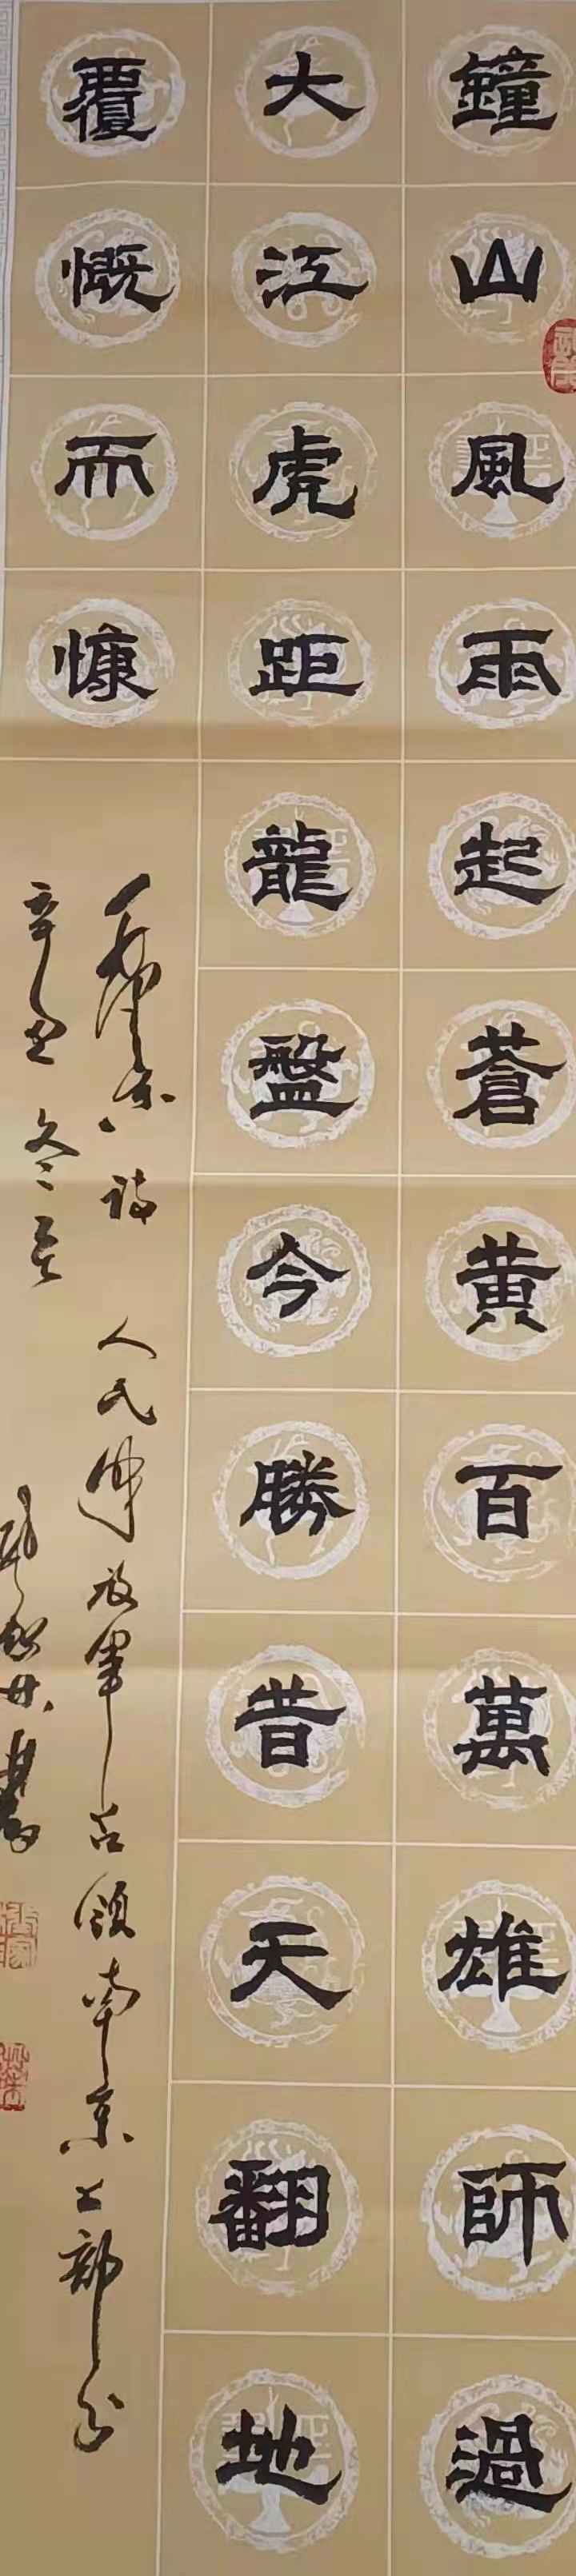 鐘山風雨起蒼黃百萬雄師過
大江虎距龍盤今勝昔天翻地
覆慨而慷
毛澤東詩 人民解放軍占領南京上部分
辛丑冬月
書